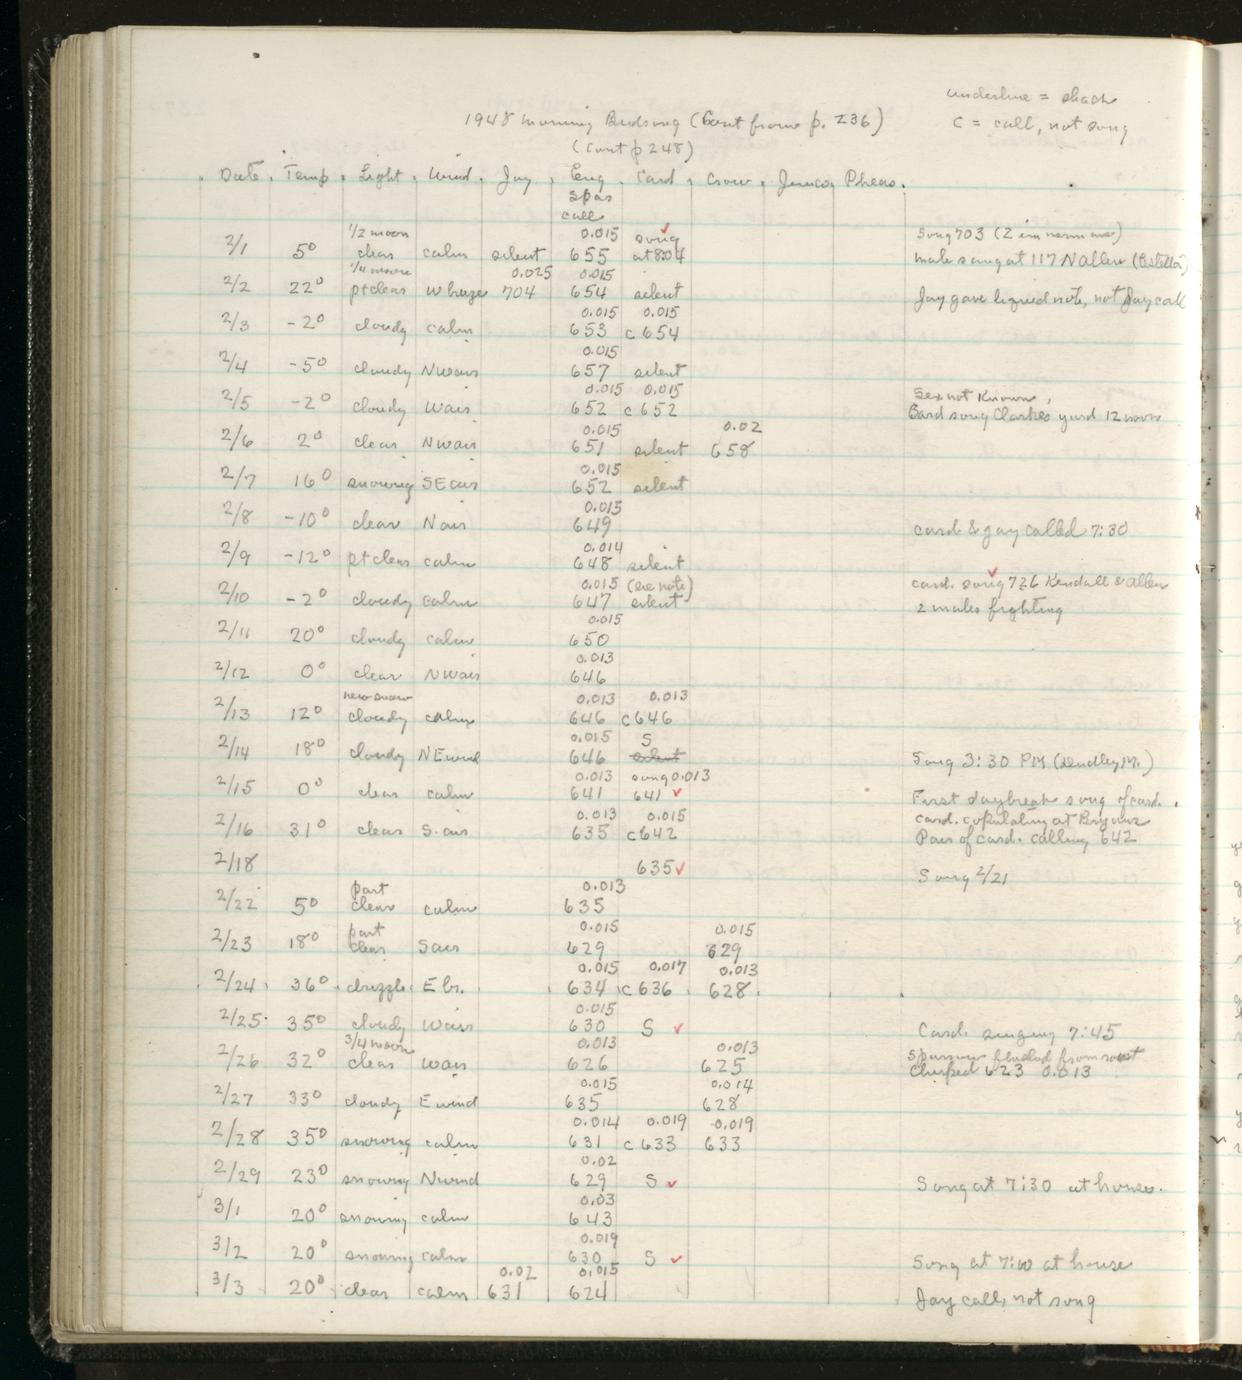 underline =
1948 Morning Birdsong (Cont from p. 236)
C = call, not song
(Cont p 248)
Date Temp Light Wind Jay Eng Card Crow Junco Pheas.
Spar
call
1/2 moon 0.015 song Song 703 (2 in norm ave)
2/1 5° clear calm silent 655 at 8:04 male sang at 117 N Allen
1/4 moon 0.025 0.015
2/2 22° pt clear W breeze 704 654 silent Jay gave liquid note, not Jay call
0.015 0.015
2/3 -2° cloudy calm 653 c 654
0.015
2/4 -5° cloudy NW air 657 silent
0.015 0.015 Sex not known,
2/5 -2° cloudy W air 652 c 652 Card song Clarkes yard 12 noon
0.015 0.02
2/6 2° clear NW air 651 silent 658
0.015
2/7 16° snowing SE air 652 silent
0.015
2/8 -10° clear N air 649 card & jay called 7:30
0.014
2/9 -12° pt clear calm 648 silent
0.015 (see note) card. song 726 Kendall & Allen
2/10 -2° cloudy calm 647 silent 2 males fighting
0.015
2/11 20° cloudy calm 650
0.013
2/12 0° clear NW air 646
new snow 0.013 0.013
2/13 12° cloudy calm 646 c 646
0.015 S
2/14 18° cloudy NE wind 646 silent Song 3:30 PM (Dudley M.)
0.013 song 0.013
2/15 0° clear calm 641 641 ✓ First daybreak song of card.
0.013 0.015 card. copulating at
2/16 31° clear S. air 635 c 642 Pair of card. calling 642
2/18 635 ✓ Song 2/21
part 0.013
2/22 5° clear calm 635
part 0.015 0.015
2/23 18° clear S air 629 629
0.015 0.017 0.013
2/24 36° drizzle E br. 634 c 636 628
0.015
2/25 35° cloudy W air 630 S ✓ Card. singing 7:45
3/4 moon 0.013 0.013 Sparrow flushed from roost
2/26 32° clear W air 626 625 chirped 623 0.013
0.015 0.014
2/27 33° cloudy E wind 635 628
0.014 0.019 0.019
2/28 35° snowing calm 631 c 633 633
0.02
2/29 23° snowing N wind 629 S ✓ Song at 7:30 at house.
0.03
3/1 20° snowing calm 643
0.019
3/2 20° snowing calm 630 S ✓ Song at 7:00 at house
0.02 0.015
3/3 20° clear calm 631 624 Jay call, not song